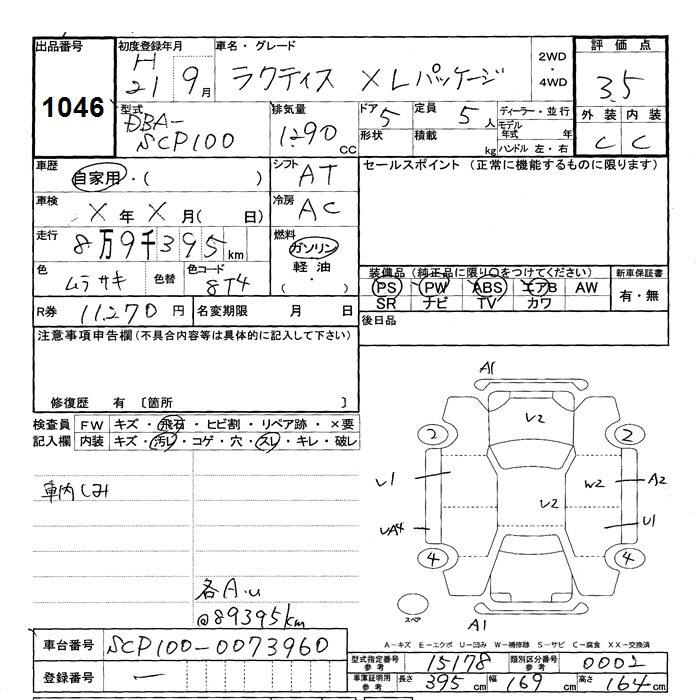 出品番号 初度登録年月 車名・グレード 2WD・4WD 評価点
1046 H21 9月 ラクティス XLパッケージ 3.5
型式 DBA-SCP100 排気量 1290cc ドア 5 定員 5人 ディーラー・並行 外装 内装
形状 積載 kg モデル年式 年 ハンドル 左・右 C C
車歴 自家用・( ) シフト AT セールスポイント (正常に機能するものに限ります)
車検 X年X月( 日) 冷房 AC
走行 8万9千395km 燃料 ガソリン 軽油・( )
色 ムラサキ 色替 色コード 8T4
装備品(純正品に限り○をつけてください) 新車保証書
PS PW ABS エアB AW 有・無
SR ナビ TV カワ
R券 11,270円 名変期限 月 日 後日品
注意事項申告欄(不具合内容等は具体的に記入して下さい)
修復歴 有 〔箇所 〕
検査員 FW キズ・飛石・ヒビ割・リペア跡・×要
記入欄 内装 キズ・汚レ・コゲ・穴・スレ・キレ・破レ
A1
V2
2 2
U1 W2 A2
V2
UA4 U1
4 4
スペア A1
車内しみ
各A.U
@89395km
A-キズ E-エクボ U-凹み W-補修跡 S-サビ C-腐食 XX-交換済
車台番号 SCP100-0073960
型式指定番号 参考 15178 類別区分番号 参考 0002
登録番号 —
車庫証明用 参考 長さ 395cm 幅 169cm 高さ 164cm